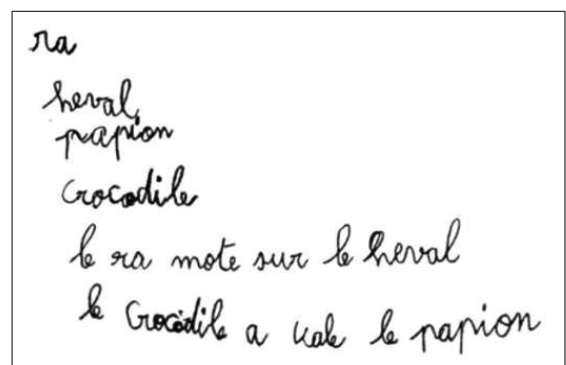 ra
heval
papion
crocodile
le ra mote sur le heval
le crocodile a vale le papion